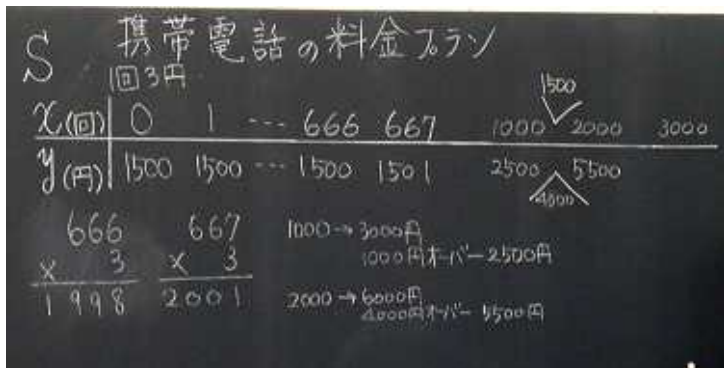 S 携帯電話の料金プラン
1回3円
1500
x(回) 0 1 … 666 667 1000 2000 3000
y(円) 1500 1500 … 1500 1501 2500 5500
4000
666 667
× 3 × 3
1998 2001
1000→3000円
1000円オーバー2500円
2000→6000円
4000円オーバー 5500円